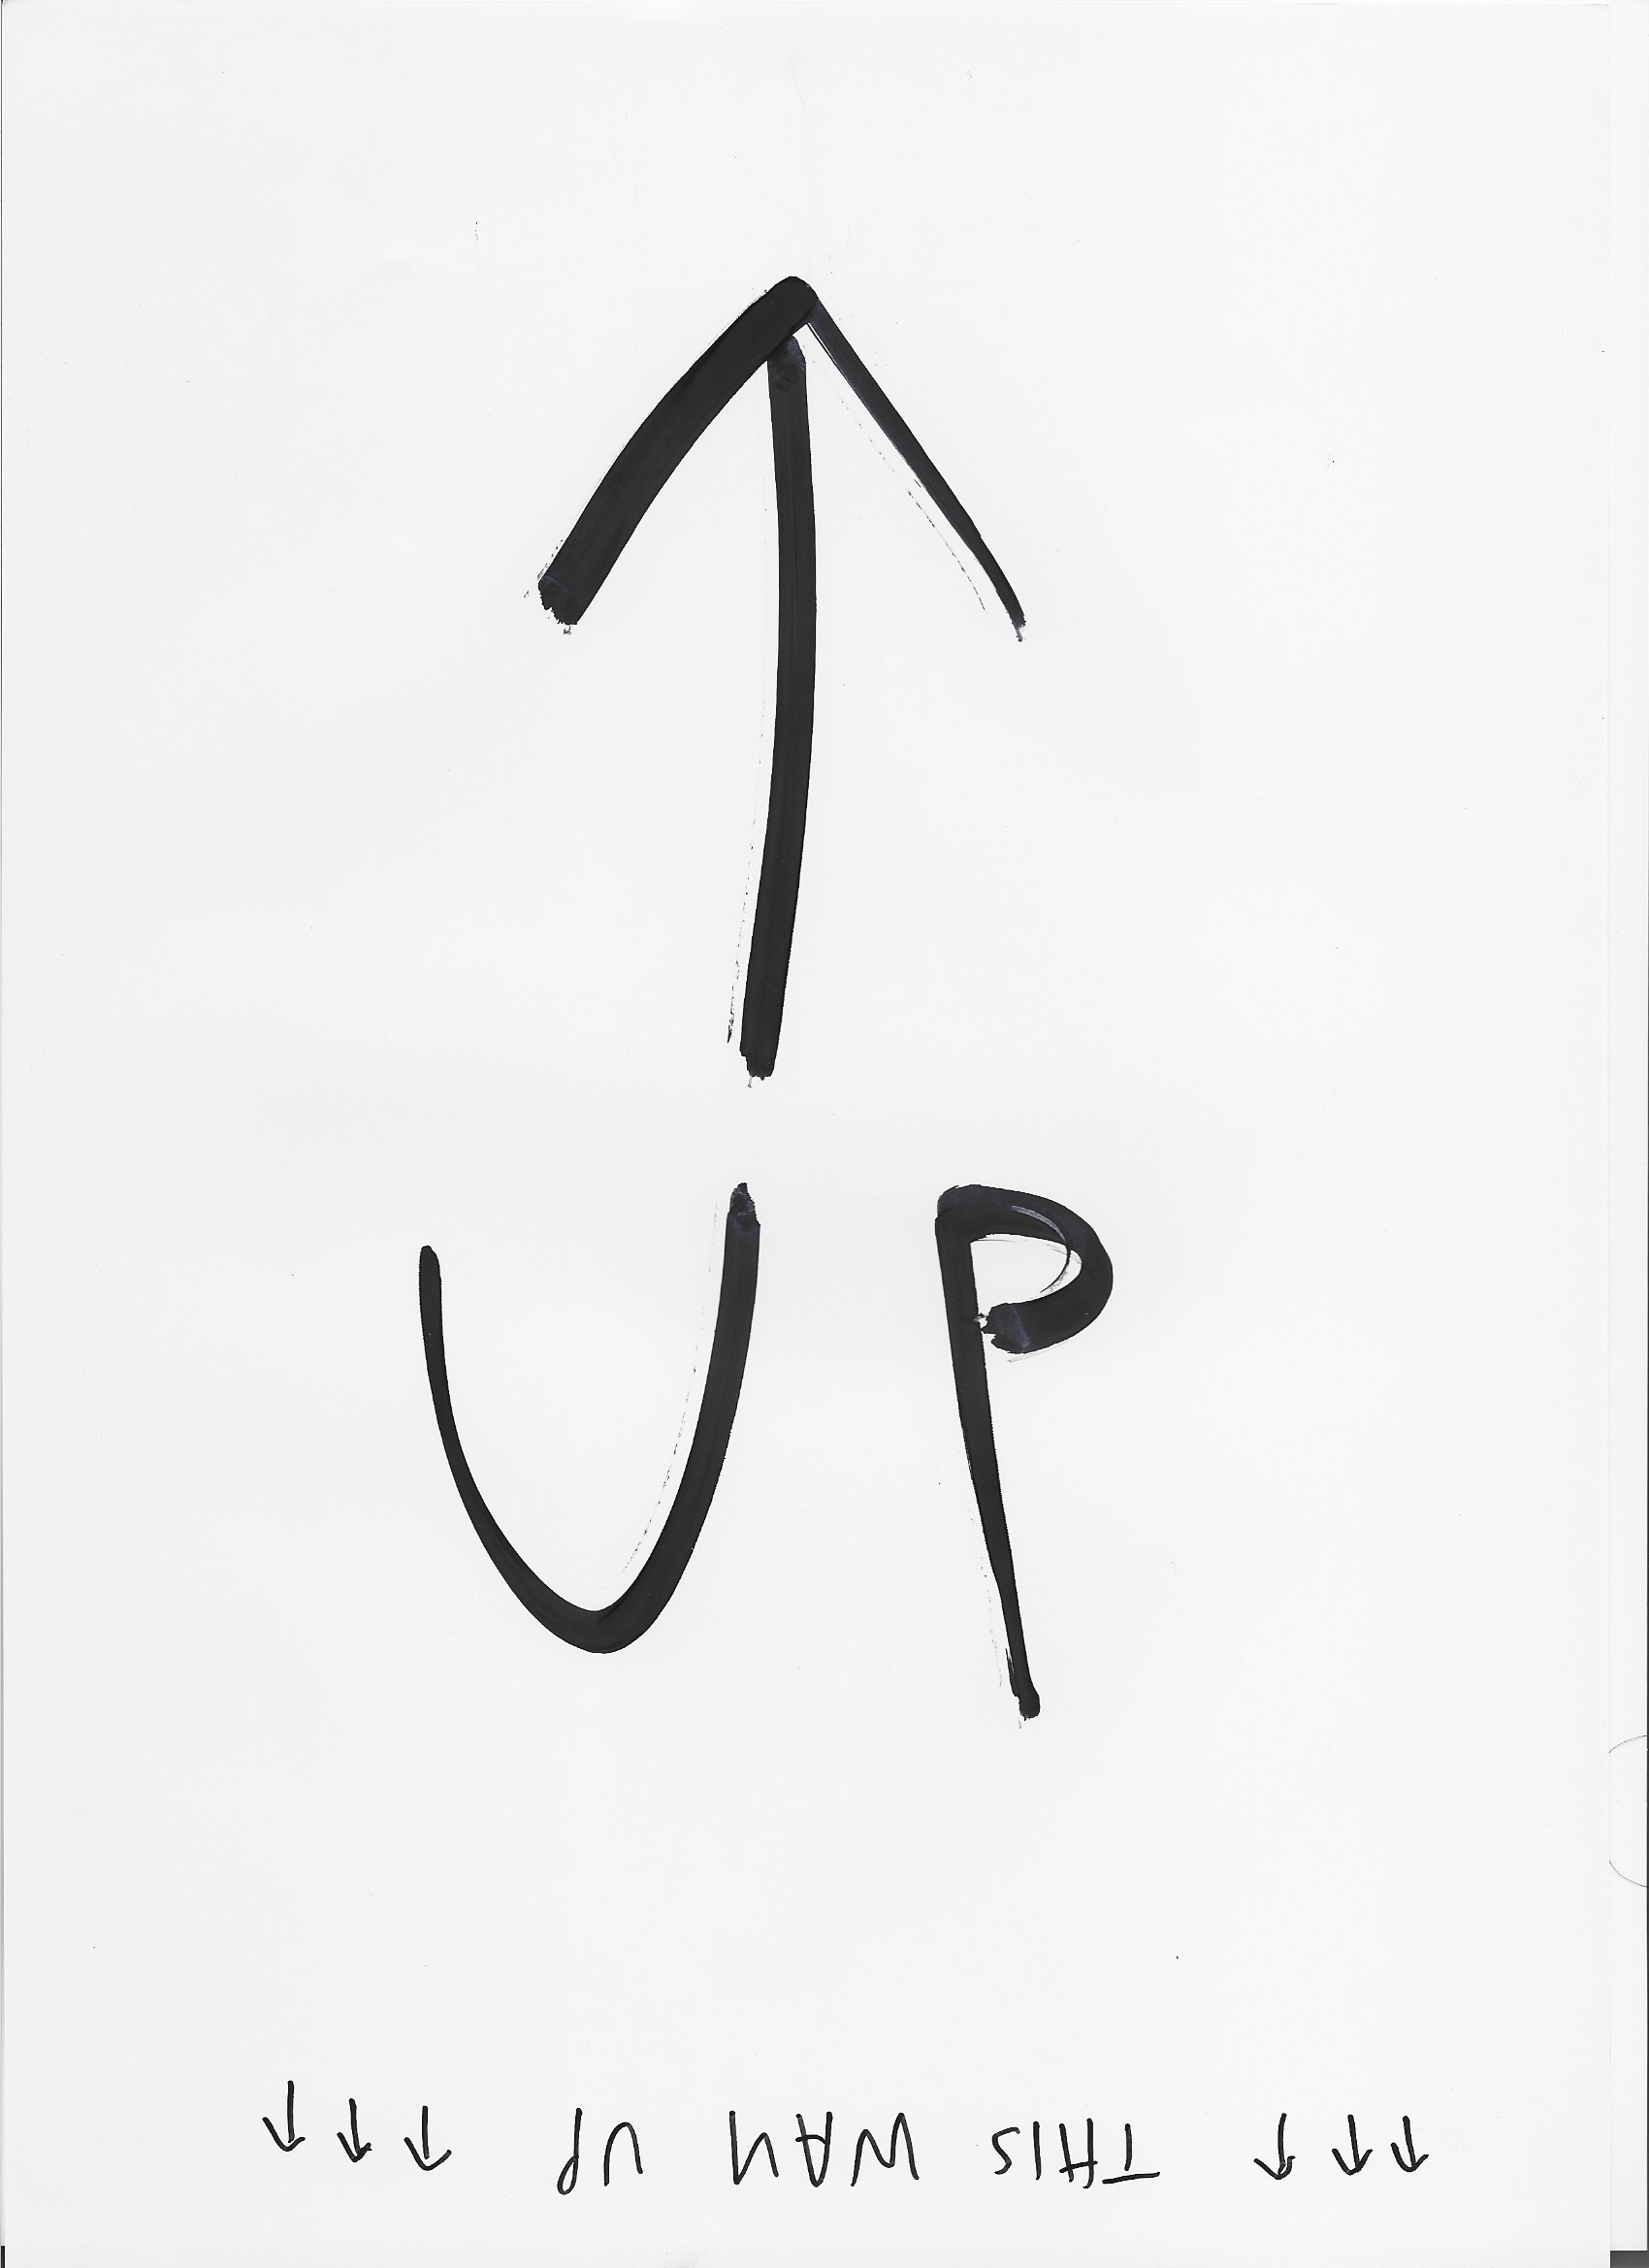 ↑
UP
↑↑↑ THIS WAY UP ↑↑↑